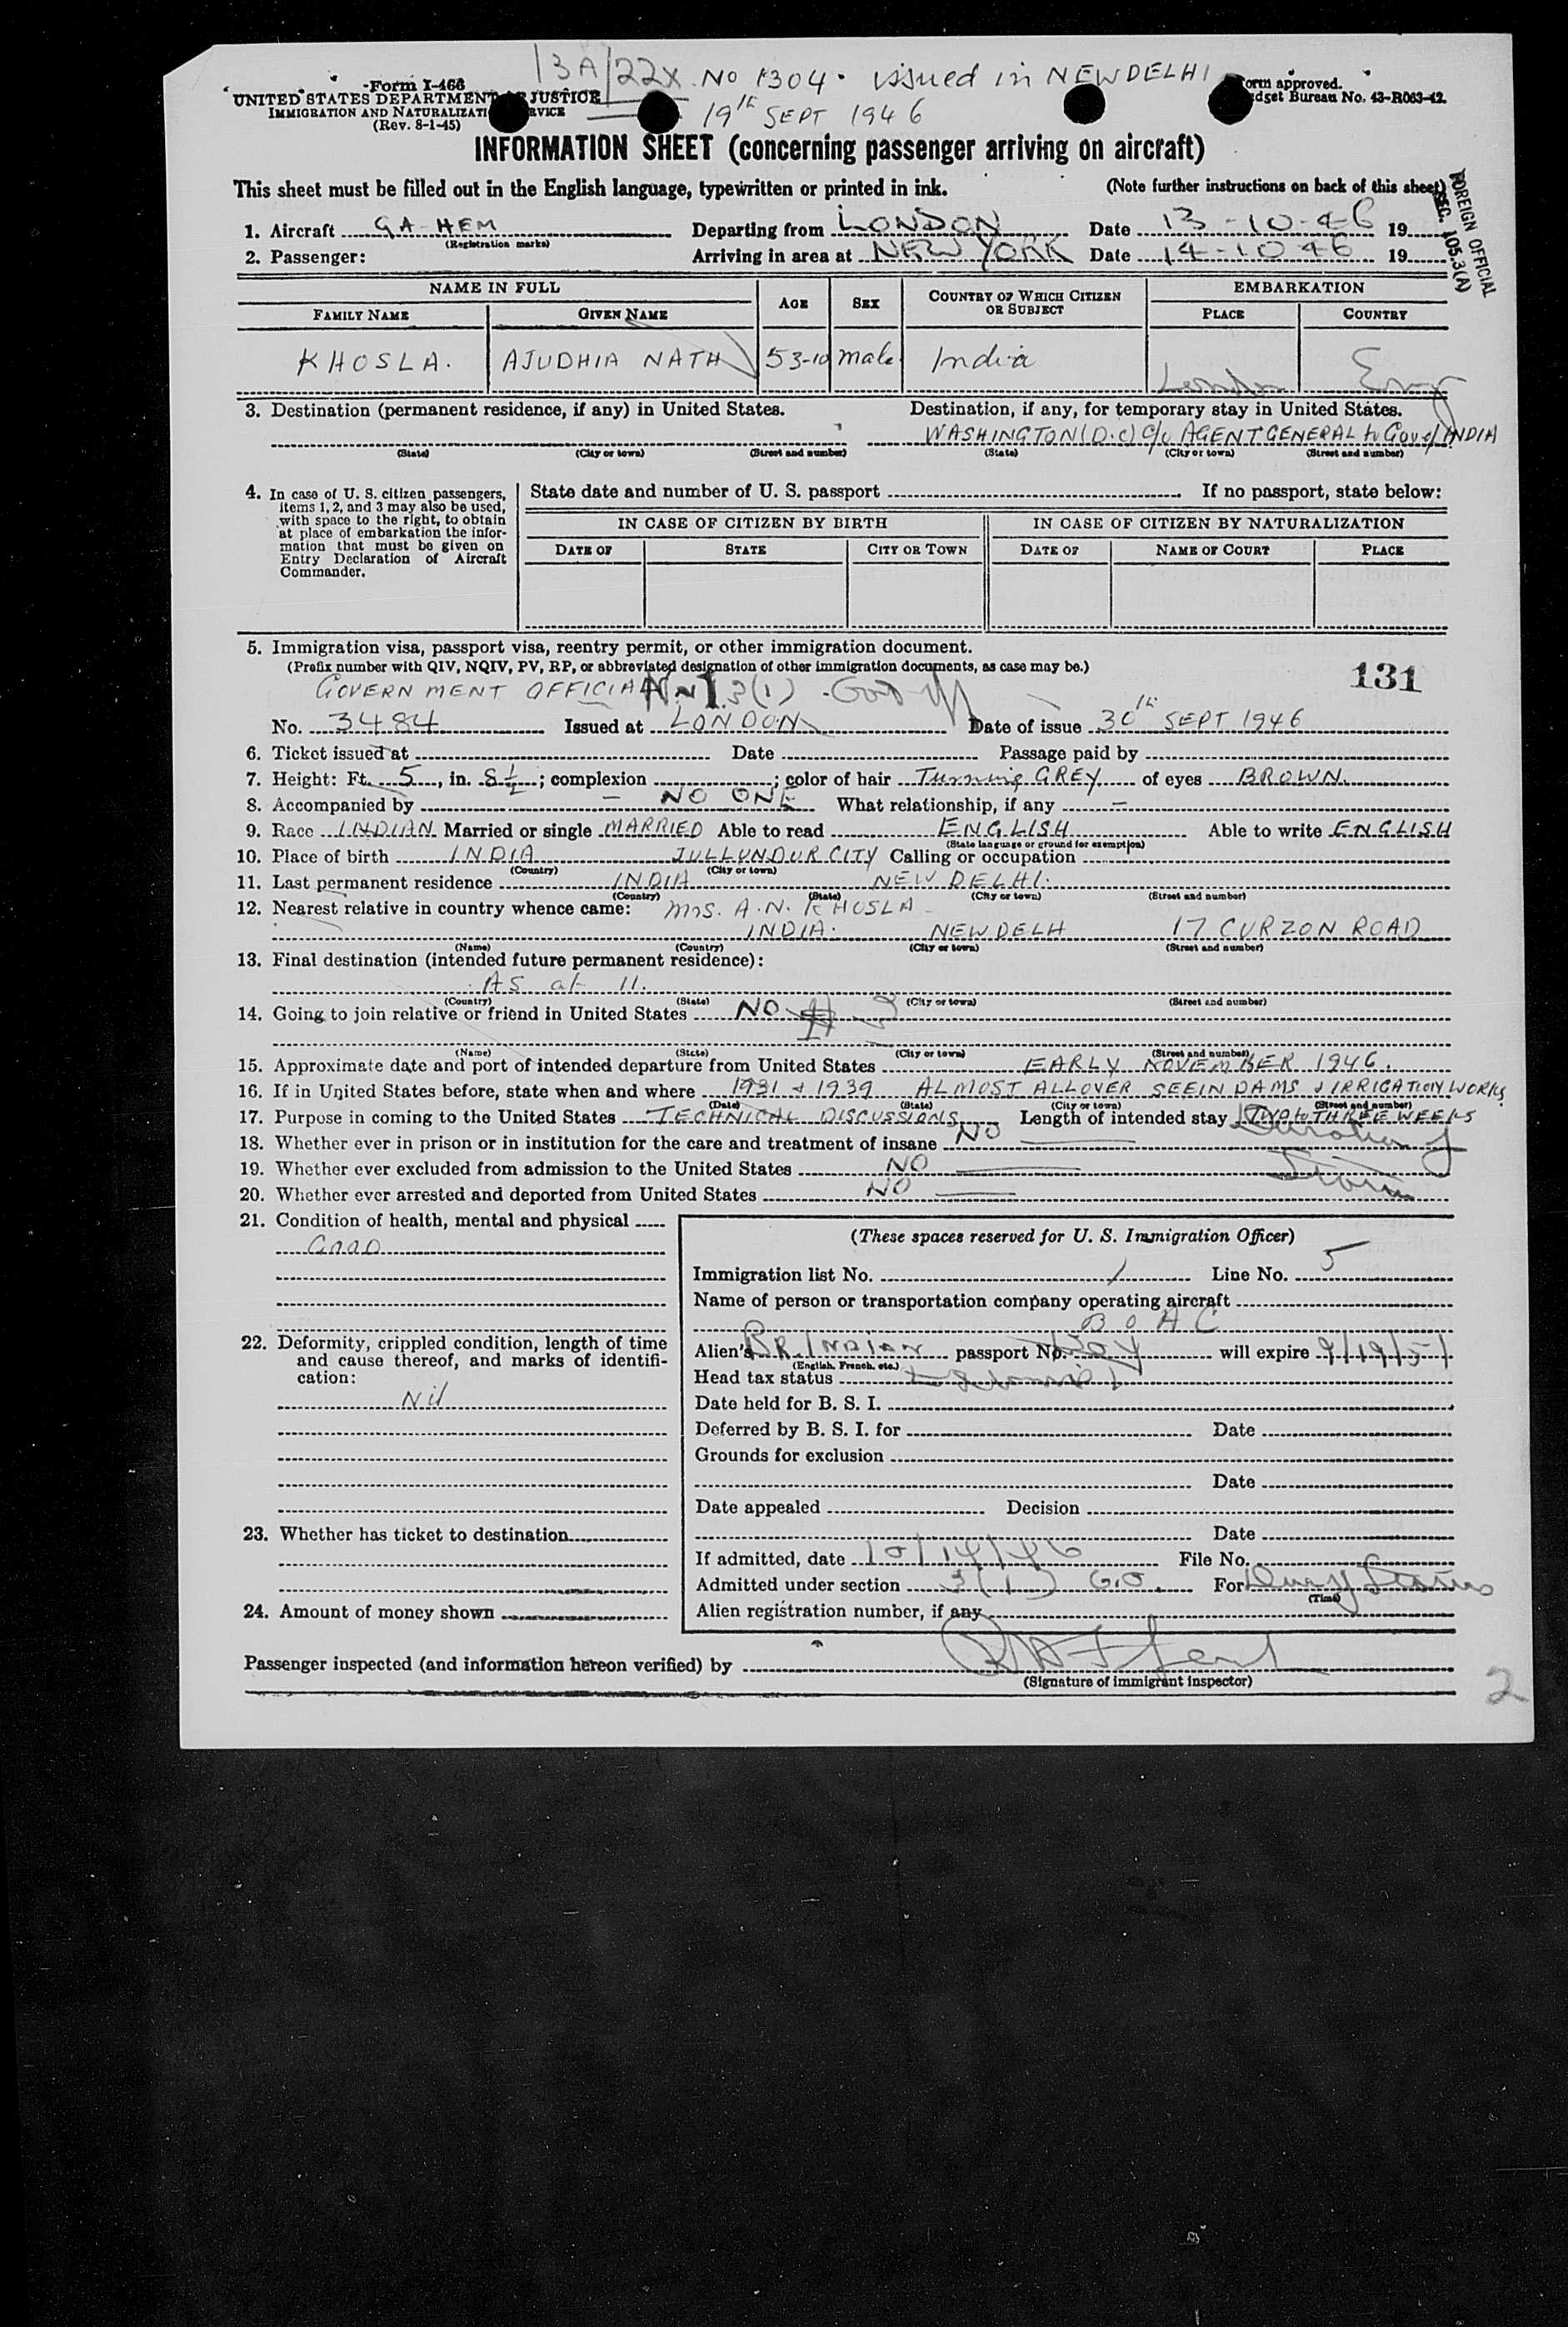 13A/22X No 1304. issued in NEW DELHI
19th SEPT 1946
Form I-466
UNITED STATES DEPARTMENT OF JUSTICE
IMMIGRATION AND NATURALIZATION SERVICE
(Rev. 8-1-45)
Form approved.
Budget Bureau No. 43-R063-42.
INFORMATION SHEET (concerning passenger arriving on aircraft)
This sheet must be filled out in the English language, typewritten or printed in ink. (Note further instructions on back of this sheet)
FOREIGN OFFICIAL
SEC. 105.3(A)
1. Aircraft GA-HEM Departing from LONDON Date 13-10-46 19
(Registration marks)
2. Passenger: Arriving in area at NEW YORK Date 14-10-46 19
NAME IN FULL AGE SEX COUNTRY OF WHICH CITIZEN OR SUBJECT EMBARKATION
FAMILY NAME GIVEN NAME PLACE COUNTRY
KHOSLA. AJUDHIA NATH 53-10 male India London Eng
3. Destination (permanent residence, if any) in United States. Destination, if any, for temporary stay in United States.
WASHINGTON (D.C) C/o AGENT GENERAL to Gov of INDIA
(State) (City or town) (Street and number) (State) (City or town) (Street and number)
4. In case of U. S. citizen passengers, items 1, 2, and 3 may also be used, with space to the right, to obtain at place of embarkation the information that must be given on Entry Declaration of Aircraft Commander.
State date and number of U. S. passport If no passport, state below:
IN CASE OF CITIZEN BY BIRTH IN CASE OF CITIZEN BY NATURALIZATION
DATE OF STATE CITY OR TOWN DATE OF NAME OF COURT PLACE
5. Immigration visa, passport visa, reentry permit, or other immigration document.
(Prefix number with QIV, NQIV, PV, RP, or abbreviated designation of other immigration documents, as case may be.)
131
GOVERNMENT OFFICIAL 3(1)
No. 3484 Issued at LONDON Date of issue 30th SEPT 1946
6. Ticket issued at Date Passage paid by
7. Height: Ft. 5, in. 8½; complexion ; color of hair Turning GREY of eyes BROWN.
8. Accompanied by - NO ONE What relationship, if any -
9. Race INDIAN Married or single MARRIED Able to read ENGLISH Able to write ENGLISH
(State language or ground for exemption)
10. Place of birth INDIA JULLUNDUR CITY Calling or occupation
(Country) (City or town)
11. Last permanent residence INDIA NEW DELHI.
(Country) (State) (City or town) (Street and number)
12. Nearest relative in country whence came: Mrs. A.N. KHOSLA
INDIA. NEW DELH 17 CURZON ROAD
(Name) (Country) (City or town) (Street and number)
13. Final destination (intended future permanent residence):
As at 11.
(Country) (State) (City or town) (Street and number)
14. Going to join relative or friend in United States NO
(Name) (State) (City or town) (Street and number)
15. Approximate date and port of intended departure from United States EARLY NOVEMBER 1946.
16. If in United States before, state when and where 1931 & 1939 ALMOST ALLOVER SEEIN DAMS & IRRIGATION WORKS
(Date) (State) (City or town) (Street and number)
17. Purpose in coming to the United States TECHNICAL DISCUSSIONS Length of intended stay TWO to THREE WEEKS
Duration of
Status
18. Whether ever in prison or in institution for the care and treatment of insane NO
19. Whether ever excluded from admission to the United States NO
20. Whether ever arrested and deported from United States NO
21. Condition of health, mental and physical
GOOD
22. Deformity, crippled condition, length of time and cause thereof, and marks of identification:
Nil
23. Whether has ticket to destination
24. Amount of money shown
(These spaces reserved for U. S. Immigration Officer)
Immigration list No. 1 Line No. 5
Name of person or transportation company operating aircraft
BOAC
Alien's BR. INDIAN passport No. will expire 9/19/51
(English, French, etc.)
Head tax status
Date held for B. S. I.
Deferred by B. S. I. for Date
Grounds for exclusion
Date
Date appealed Decision
Date
If admitted, date 10/14/46 File No.
Admitted under section 3(1) G.O. For Status
(Time)
Alien registration number, if any
Passenger inspected (and information hereon verified) by
(Signature of immigrant inspector)
2